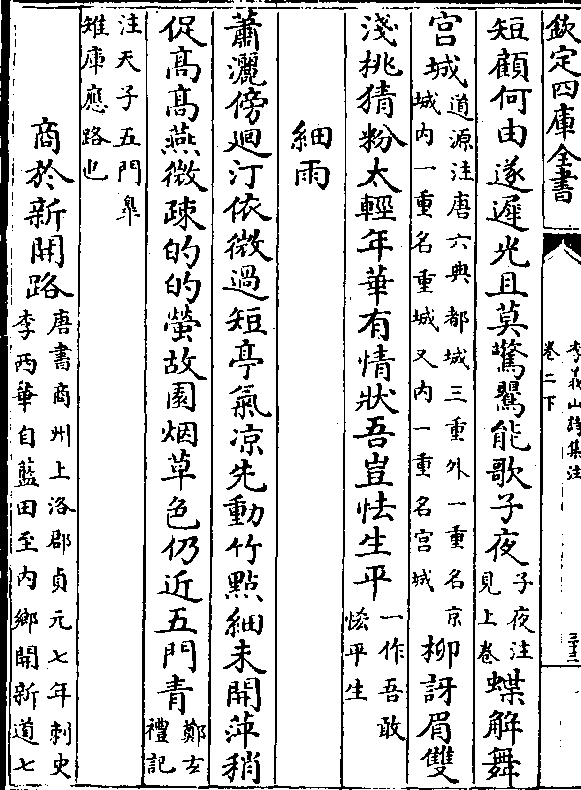 欽定四庫全書
李義山詩集注
卷二下
三十二
短顧何由遂遲光且莫驚鸎能歌子夜子夜注見上卷蝶解舞
宫城道源注唐六典都城三重外一重名京城内一重名重城又内一重名宫城柳訝眉雙
淺桃猜粉太輕年華有情狀吾豈怯生平一作吾敢恡平生
細雨
蕭灑傍迴汀依微過短亭氣凉先動竹點細未開萍稍
促髙髙燕微疎的的螢故園烟草色仍近五門青鄭𤣥禮記
注天子五門臯雉庫應路也
商於新開路唐書商州上洛郡貞元七年刺史李西華自藍田至内鄉開新道七